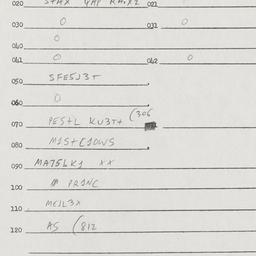 020 021
030 0 031 0
040 0
041 0 042 0
050 SFE5J3T
060 0
070 PESTL KU3T+ (306
080 M1St[10WS
090 MA75LK1 XX
100 PR1NC
110 MEJL3X
120 AS (812